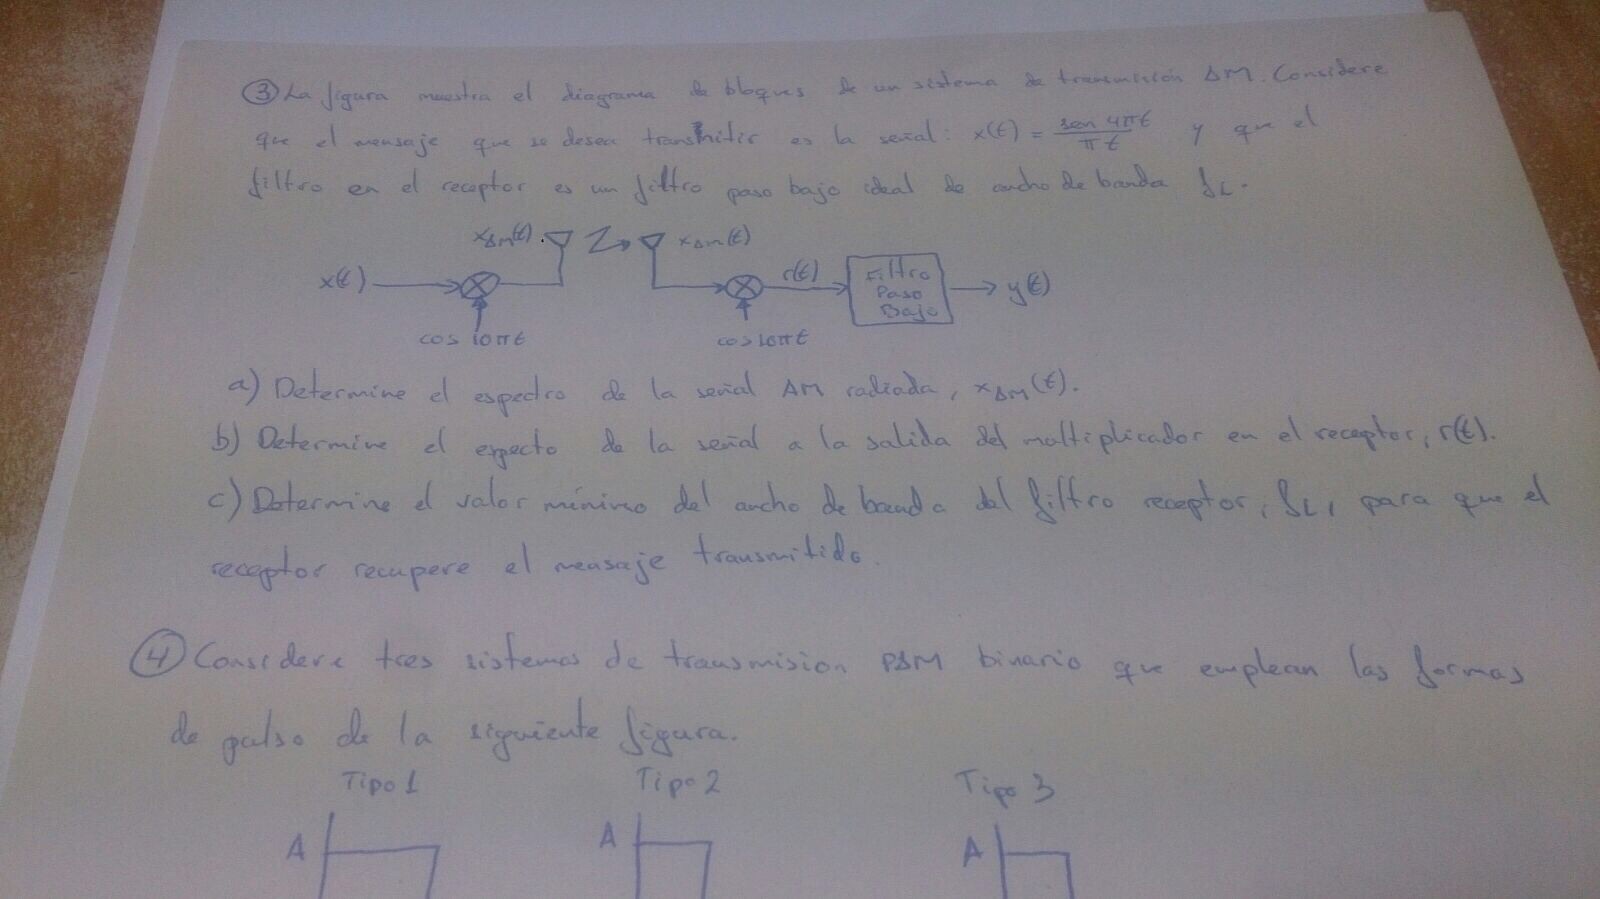 ③ La figura muestra el diagrama de bloques de un sistema de transmisión AM. Considere
que el mensaje que se desea transmitir es la señal: x(t) = sen 4πt / πt y que el
filtro en el receptor es un filtro paso bajo ideal de ancho de banda fL.
xAM(t) xAM(t)
x(t) r(t) Filtro Paso Bajo y(t)
cos 10πt cos 10πt
a) Determine el espectro de la señal AM radiada, xAM(t).
b) Determine el expecto de la señal a la salida del multiplicador en el receptor, r(t).
c) Determine el valor mínimo del ancho de banda del filtro receptor, fL, para que el
receptor recupere el mensaje transmitido.
④ Considere tres sistemas de transmision PAM binario que emplean las formas
de pulso de la siguiente figura.
Tipo 1 Tipo 2 Tipo 3
A A A